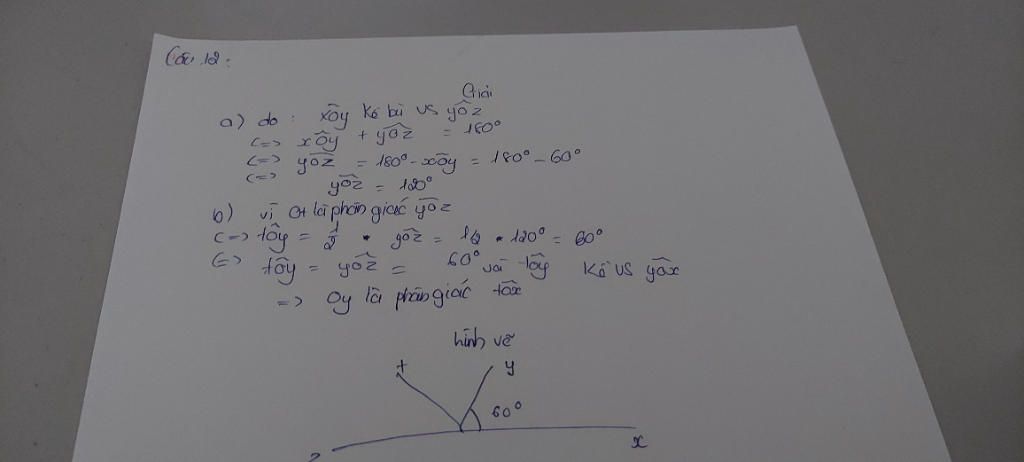 Câu 12:
Giải
a) do: xÔy kề bù vs yÔz
<=> xÔy + yÔz = 180°
<=> yÔz = 180° - xÔy = 180° - 60°
<=> yÔz = 120°
b) vì Ot là phân giác yÔz
<=> tÔy = 1/2 • yÔz = 1/2 • 120° = 60°
<=> tÔy = yÔz = 60° và tÔy kề vs yÔx
=> Oy là phân giác tÔx
hình vẽ
t y
60°
x
z